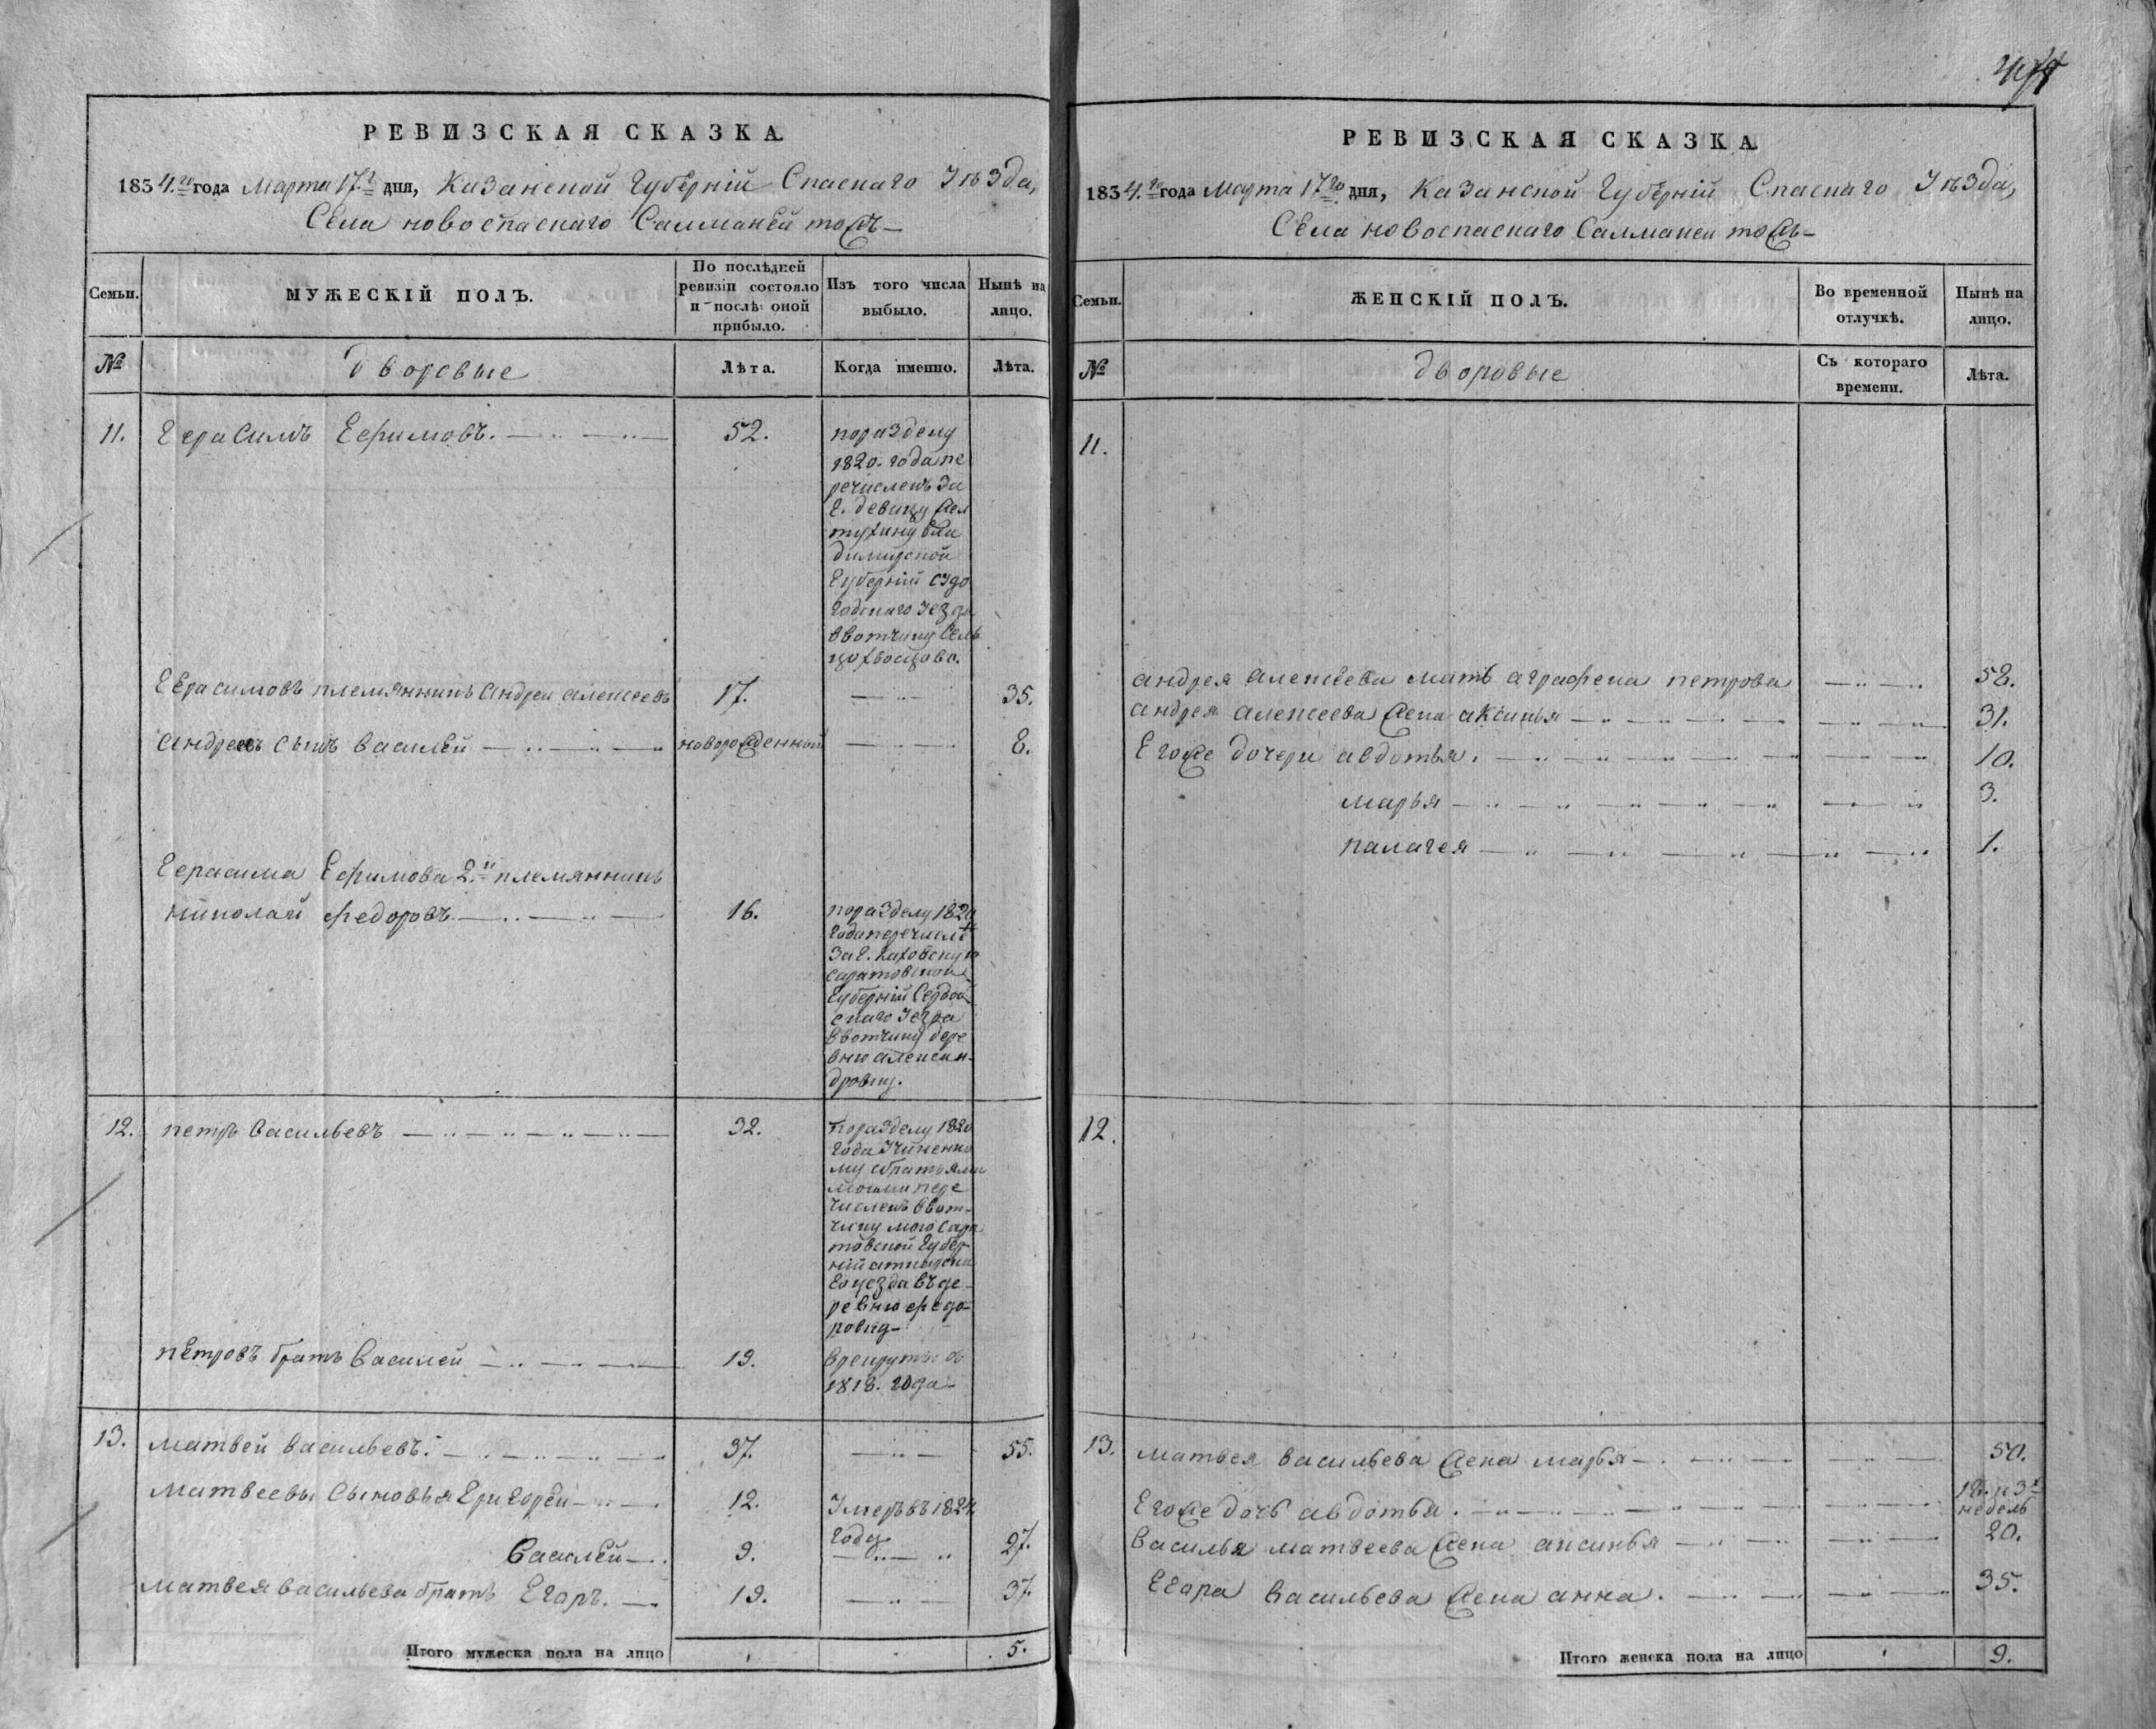 РЕВИЗСКАЯ СКАЗКА.
1834.го года Марта 17.г дня, Казанской Губерніи Спаскаго Уѣзда,
Села новоспаскаго Салманъ тожъ
Семьи.
МУЖЕСКІЙ ПОЛЪ.
По послѣдней
ревизіи состояло
и послѣ оной
прибыло.
Изъ того числа
выбыло.
Нынѣ на
лицо.
№
дворовые
Лѣта.
Когда именно.
Лѣта.
11. Герасимъ Ефимовъ. 52. поразделу
1820. года пе
речисленъ за
Г. девицу Жел
тухину Вла
димирской
Губерніи судо
годскаго уезда
ввотчину Сель
цо хвосцово.
Герасимовъ племянникъ андреи алексеевъ 17. 35.
андреевъ сынъ василей новорожденный 8.
Герасима Ефимова 2.й племянникъ
николай федоровъ 16. поразделу 1820
Года перечисле
За Г. Каховскую
саратовской
Губерніи Сердоб
скаго уезда
ввотчину дере
вню алексан-
дровку.
12. петръ васильевъ 32. Поразделу 1820
года учиненно
му събратьями
моими пере
численъ ввот-
чину мою сара
товской Губер
ніи аткарска
го уезда въ де-
ревню федо-
ровку
петровъ братъ василей 19. врекруты съ
1818. года
13. матвей васильевъ. 37. 55.
матвеевы сыновья Григорей 12. Умеръ въ 1824
году
василей 9. 27.
матвея васильева братъ Егоръ. 19. 37.
Итого мужеска пола на лицо 5.
РЕВИЗСКАЯ СКАЗКА.
1834.го года марта 17го дня, Казанской Губерніи Спаскаго Уѣзда,
Села новоспаскаго Салманъ тожъ
Семьи.
ЖЕНСКІЙ ПОЛЪ.
Во временной
отлучкѣ.
Нынѣ на
лицо.
№
дворовые
Съ котораго
времени.
Лѣта.
11.
андрея алексеева мать аграфена петрова 58.
андрея алексеева жена аксинья 31.
Егоже дочери авдотья. 10.
марья 3.
палагея 1.
12.
13. матвея васильева жена марья 50.
Егоже дочь авдотья. недель
василья матвеева жена аксинья 20.
Егора васильева жена анна. 35.
Итого женска пола на лицо 9.